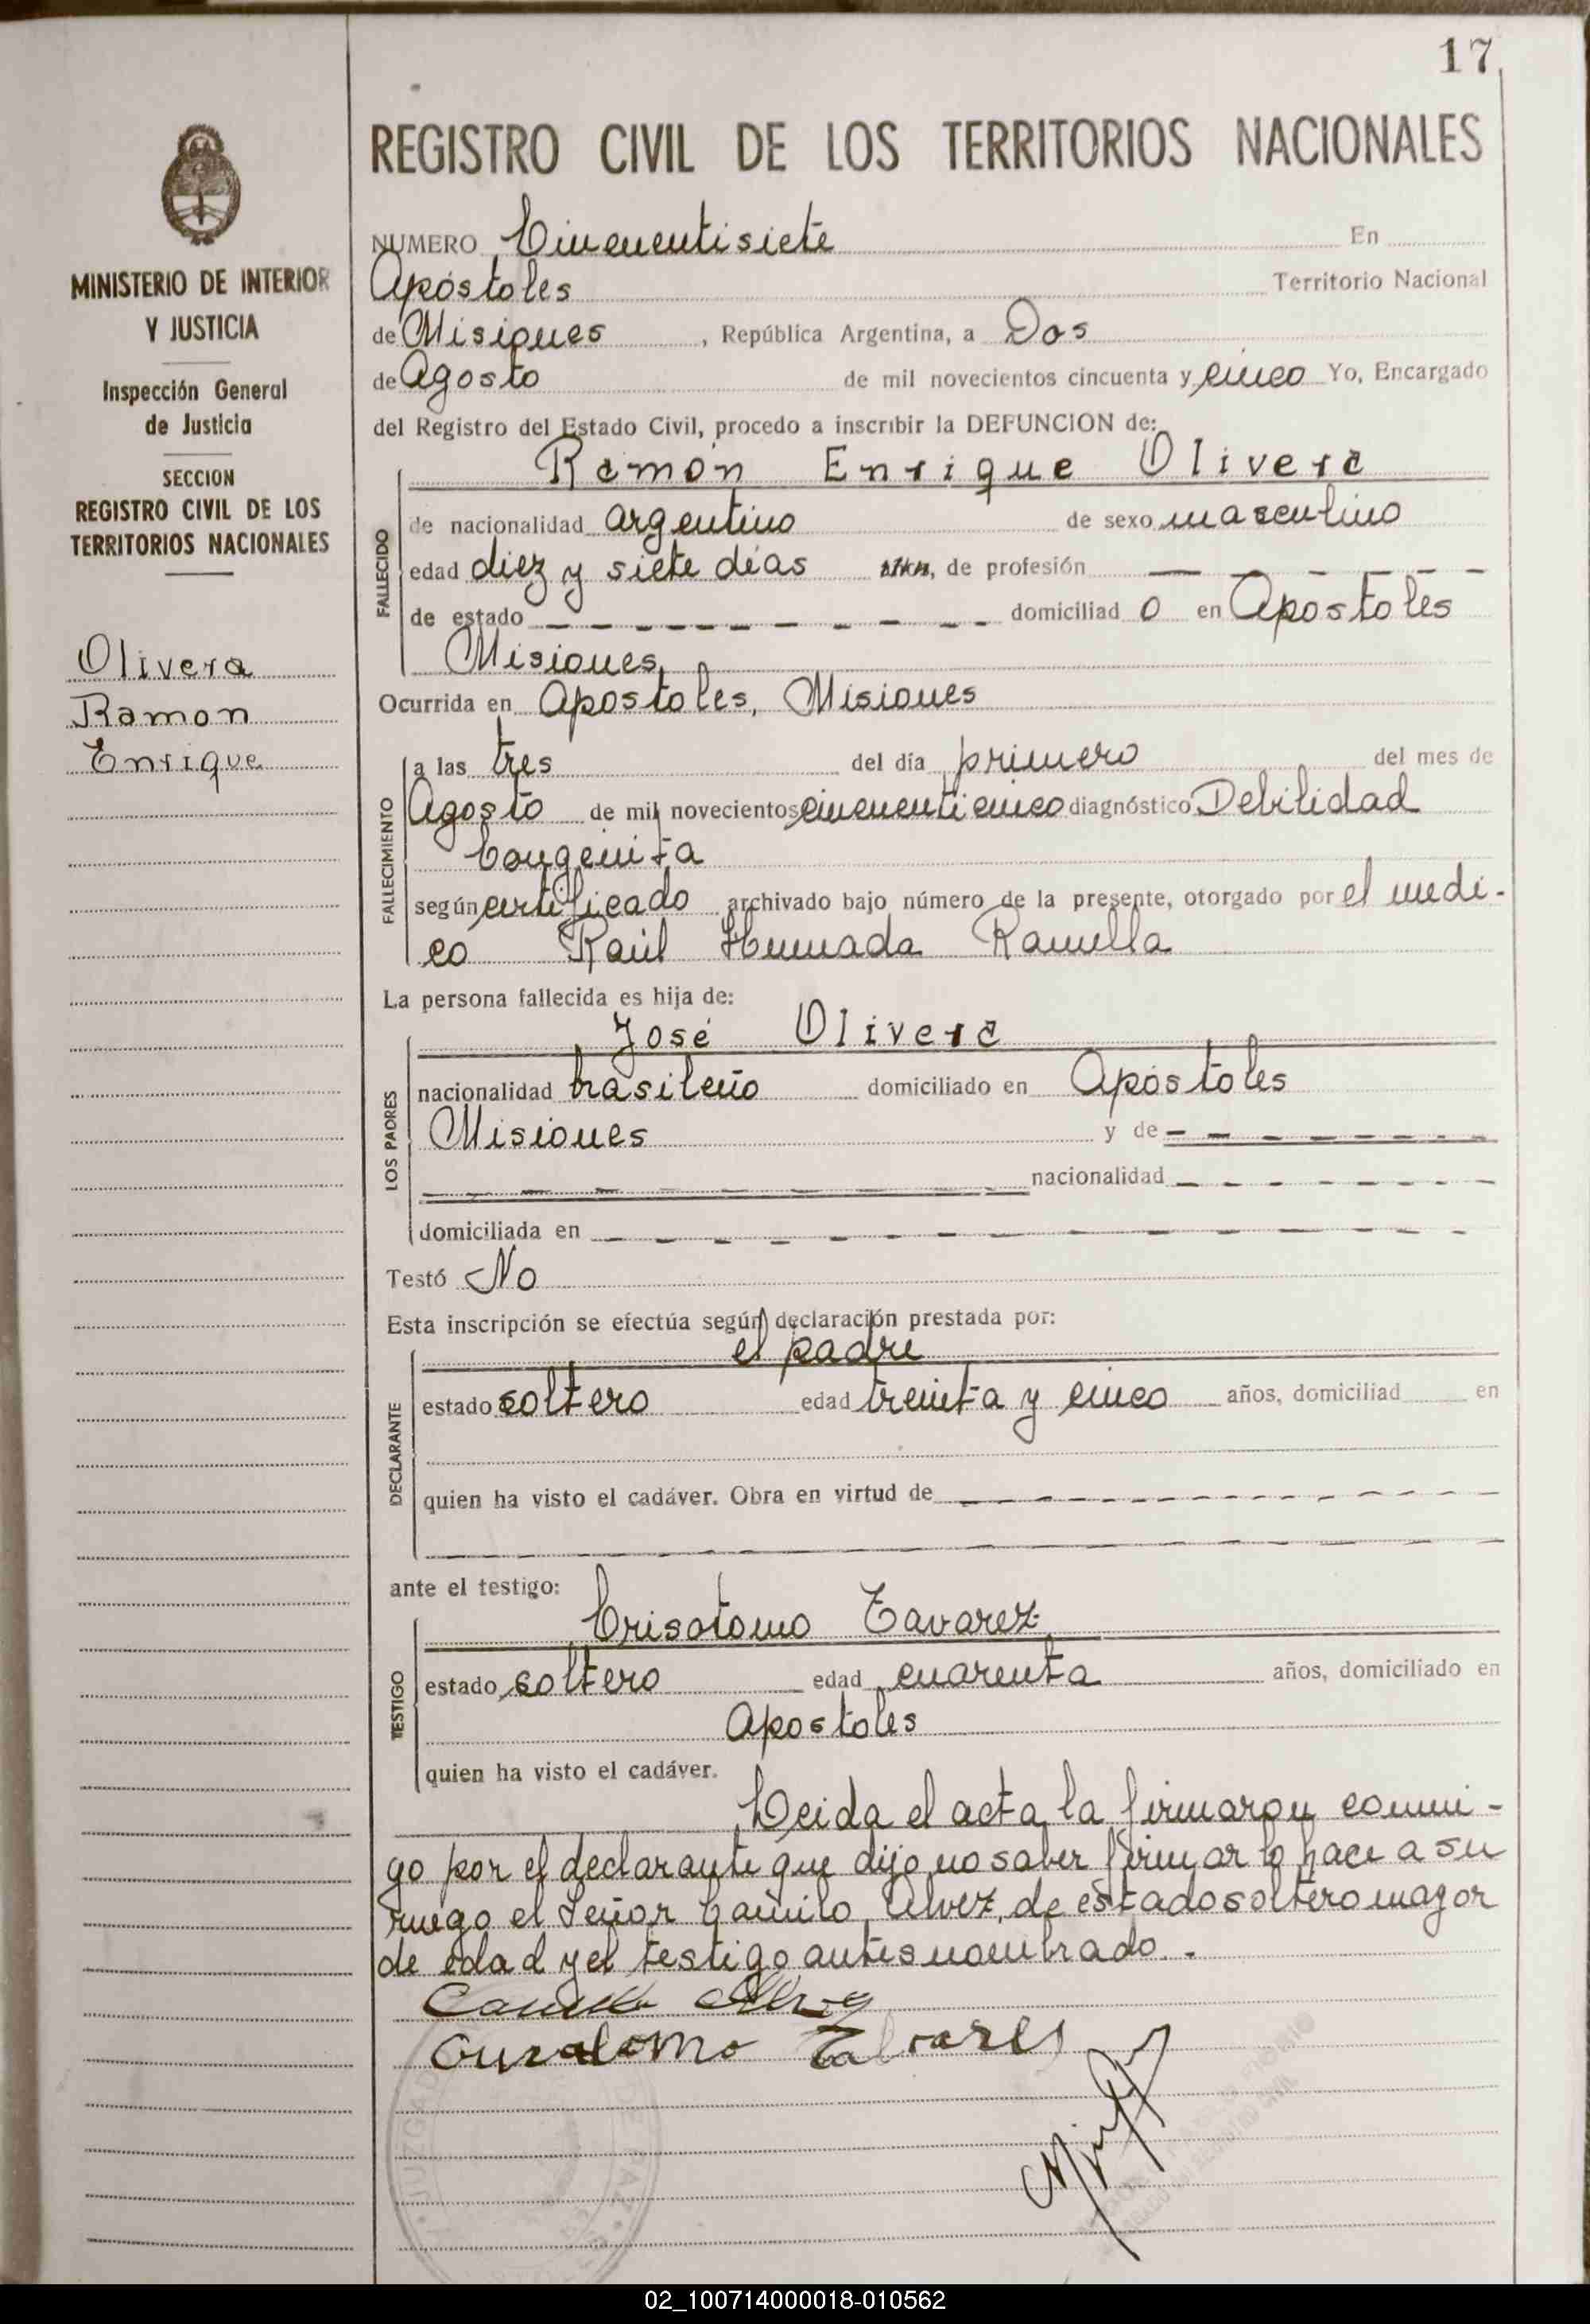 17
REGISTRO CIVIL DE LOS TERRITORIOS NACIONALES
MINISTERIO DE INTERIOR
Y JUSTICIA
Inspección General
de Justicia
SECCION
REGISTRO CIVIL DE LOS
TERRITORIOS NACIONALES
Olivera
Ramon
Enrique
NUMERO Cincuentisiete En
Apóstoles Territorio Nacional
de Misiones, República Argentina, a Dos
de Agosto de mil novecientos cincuenta y cinco Yo, Encargado
del Registro del Estado Civil, procedo a inscribir la DEFUNCION de:
Ramón Enrique Olivera
FALLECIDO
de nacionalidad argentino de sexo masculino
edad diez y siete días años, de profesión
de estado domiciliad o en Apostoles
Misiones
Ocurrida en Apostoles, Misiones
FALLECIMIENTO
a las tres del día primero del mes de
Agosto de mil novecientos cincuenticinco diagnóstico Debilidad
Congenita
según certificado archivado bajo número de la presente, otorgado por el medi-
co Raúl Humada Ramella
La persona fallecida es hija de:
José Olivera
LOS PADRES
nacionalidad brasileño domiciliado en Apóstoles
Misiones y de
nacionalidad
domiciliada en
Testó No
Esta inscripción se efectúa según declaración prestada por:
el padre
DECLARANTE
estado soltero edad treinta y cinco años, domiciliad en
quien ha visto el cadáver. Obra en virtud de
ante el testigo:
Crisotomo Tavarez
TESTIGO
estado soltero edad cuarenta años, domiciliado en
Apostoles
quien ha visto el cadáver.
Leida el acta la firmaron conmi-
go por el declarante que dijo no saber firmar lo hace a su
ruego el Señor Camilo Alvez, de estado soltero mayor
de edad y el testigo antes nombrado.
02_100714000018-010562